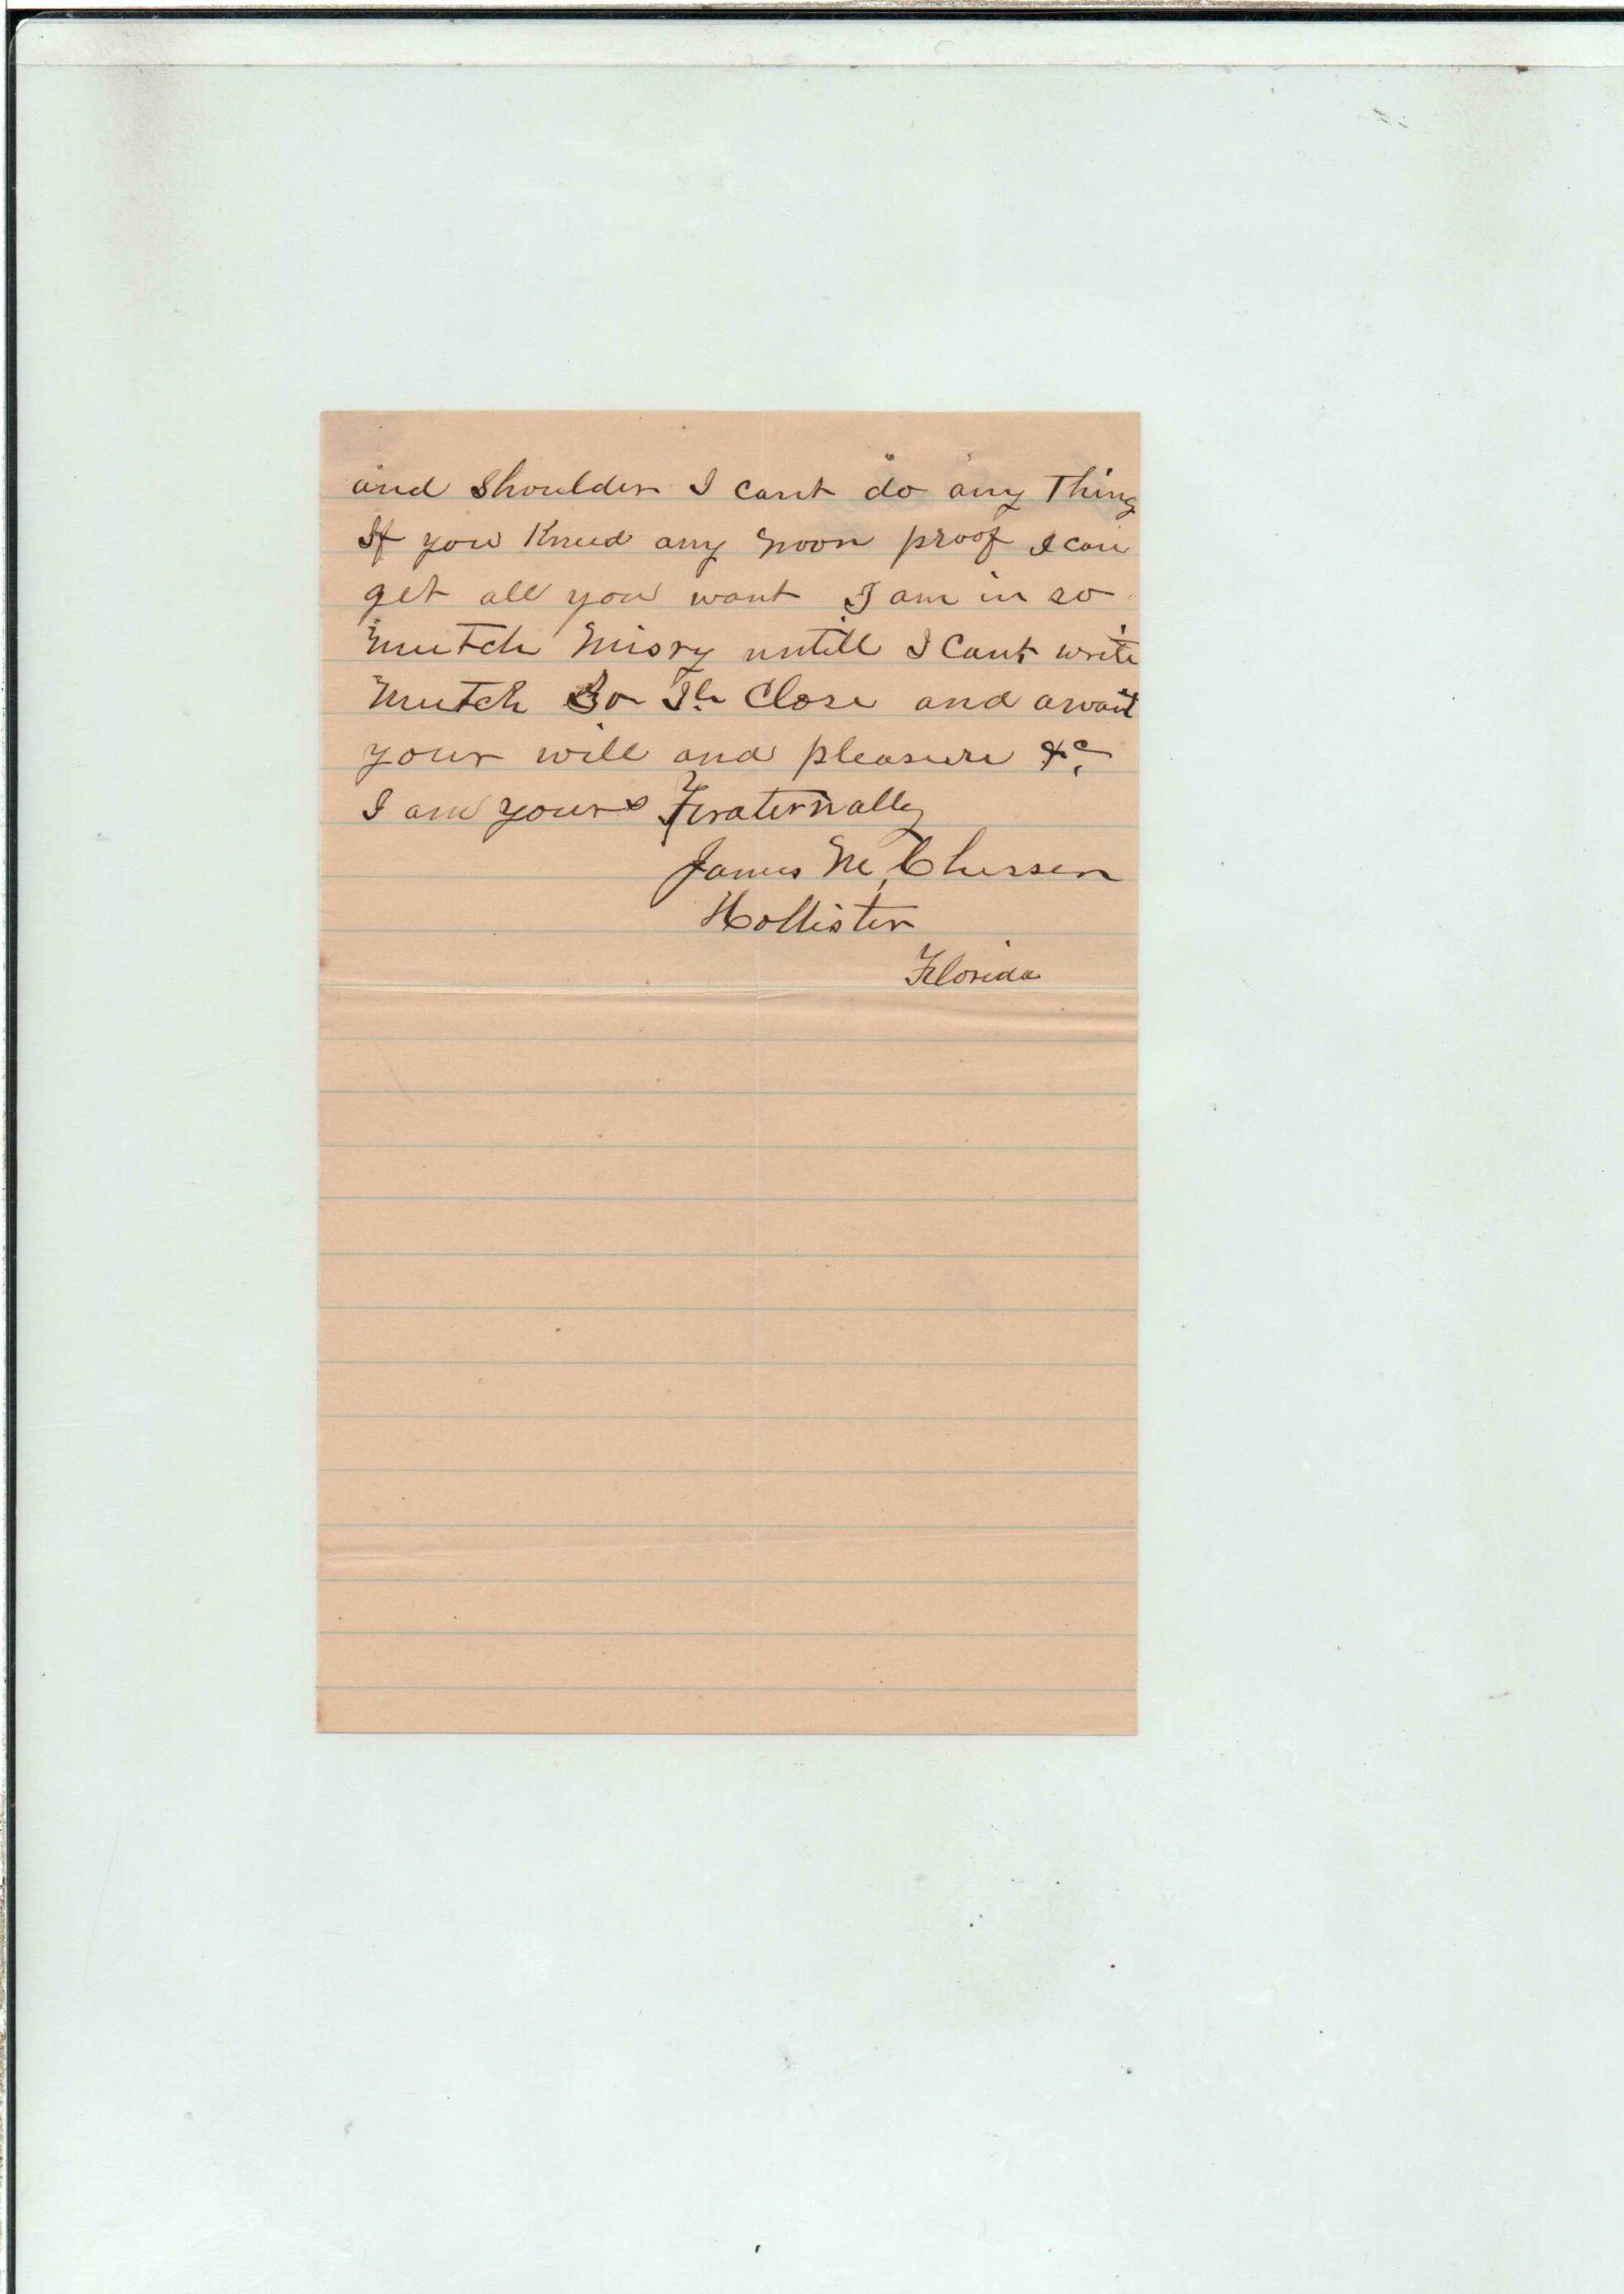 and Shoulder I cant do any Thing
If you Kneed any moor proof I can
get all you want I am in so
mutch misry untill I Cant write
mutch So Ile Close and await
your will and pleasure &c
I am yours Fraternally
James M,
Hollister
Florida